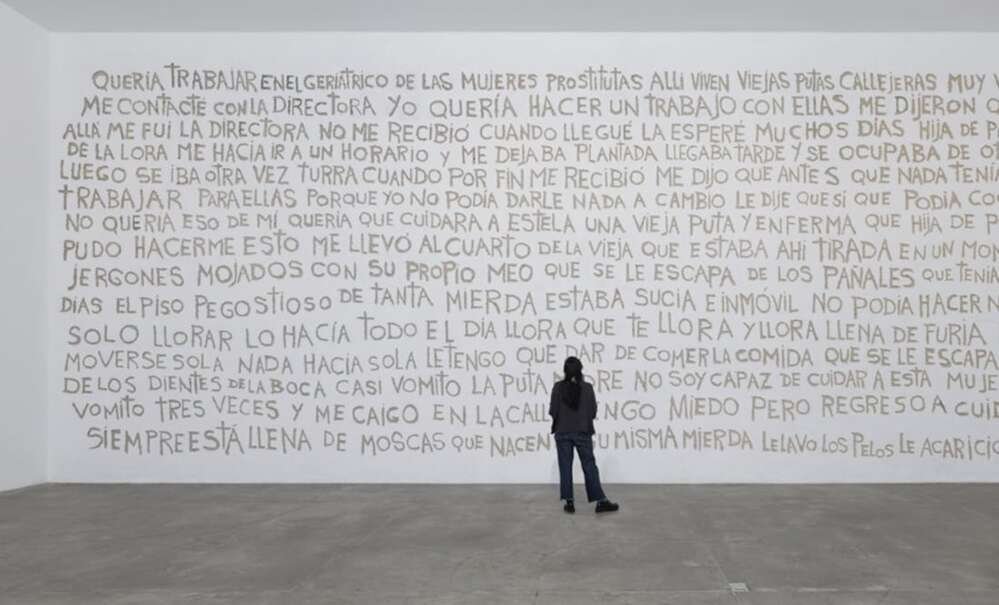 QUERÍA TRABAJAR EN EL GERIÁTRICO DE LAS MUJERES PROSTITUTAS ALLI VIVEN VIEJAS PUTAS CALLEJERAS MUY
ME CONTACTÉ CON LA DIRECTORA YO QUERÍA HACER UN TRABAJO CON ELLAS ME DIJERON
ALLÁ ME FUI LA DIRECTORA NO ME RECIBIÓ CUANDO LLEGUÉ LA ESPERÉ MUCHOS DÍAS HIJA DE
DE LA LORA ME HACÍA IR A UN HORARIO Y ME DEJABA PLANTADA LLEGABA TARDE Y SE OCUPABA DE
LUEGO SE IBA OTRA VEZ TURRA CUANDO POR FIN ME RECIBIÓ ME DIJO QUE ANTES QUE NADA TENÍ
TRABAJAR PARA ELLAS PORQUE YO NO PODÍA DARLE NADA A CAMBIO LE DIJE QUE SÍ QUE PODÍA CO
NO QUERÍA ESO DE MÍ QUERÍA QUE CUIDARA A ESTELA UNA VIEJA PUTA Y ENFERMA QUE HIJA DE P
PUDO HACERME ESTO ME LLEVÓ AL CUARTO DE LA VIEJA QUE ESTABA AHÍ TIRADA EN UN MON
JERGONES MOJADOS CON SU PROPIO MEO QUE SE LE ESCAPA DE LOS PAÑALES QUE TENÍA
DÍAS EL PISO PEGOSTIOSO DE TANTA MIERDA ESTABA SUCIA E INMÓVIL NO PODÍA HACER N
SOLO LLORAR LO HACÍA TODO EL DÍA LLORA QUE TE LLORA Y LLORA LLENA DE FURIA
MOVERSE SOLA NADA HACÍA SOLA LE TENGO QUE DAR DE COMER LA COMIDA QUE SE LE ESCAPA
DE LOS DIENTES DE LA BOCA CASI VOMITO LA PUTA DRE NO SOY CAPAZ DE CUIDAR A ESTA MUJE
VOMITO TRES VECES Y ME CAIGO EN LA CALL NGO MIEDO PERO REGRESO A CUI
SIEMPRE ESTÁ LLENA DE MOSCAS QUE NACEN SU MISMA MIERDA LE LAVO LOS PELOS LE ACARICIO